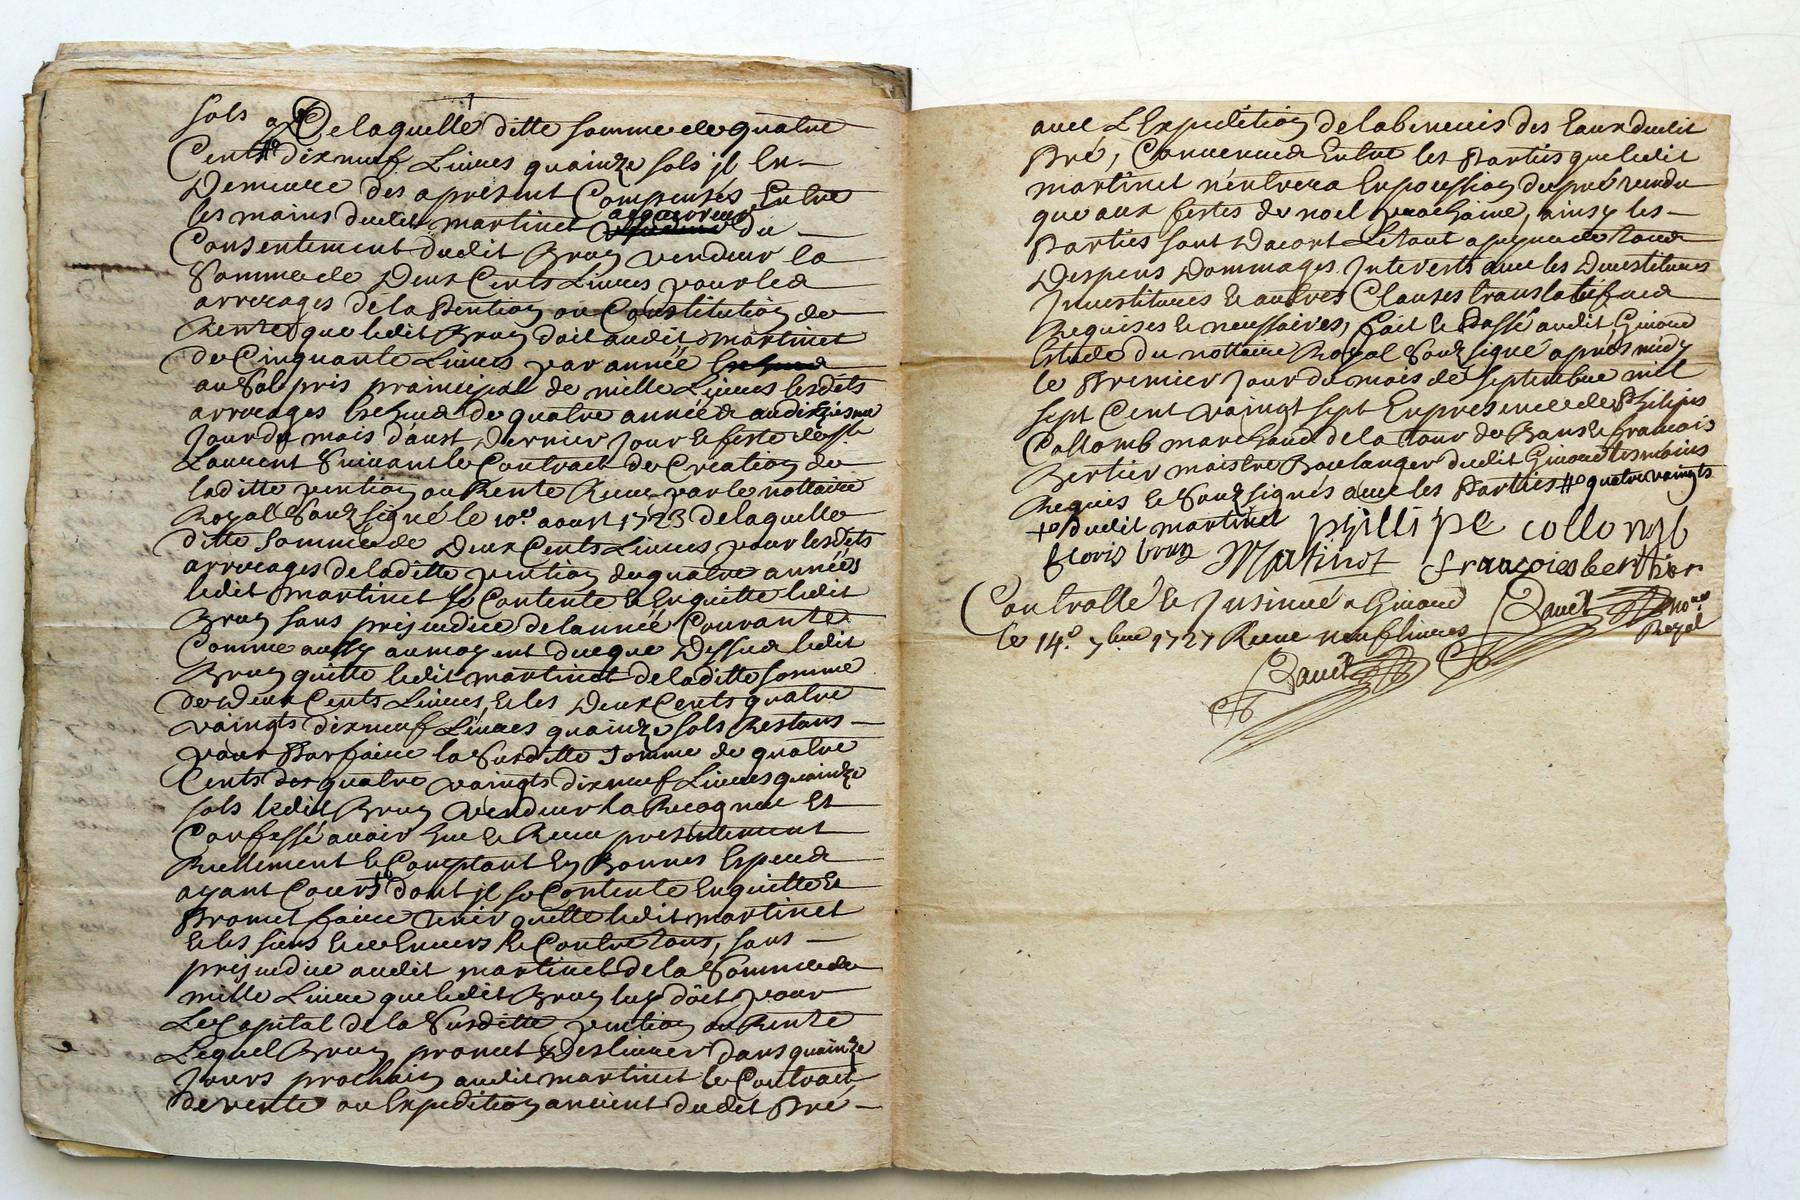 sols a Delaquelle ditte somme de quatre
Cents dixneuf Livres quainze sols jl En-
Demeure des apresent Compensés Entre
les mains dudit martinet acquerreur du -
Consentement dudit Bruy vendeur la
Somme de Deux Cents Livres pour les
arrerages de la Pention ou Constitution de
Rente que ledit Bruy doit audit martinet
de Cinquante Livres par année
au Sol pris praincipal de mille Livres lesdits
arrerages Escheus de quatre années au dixziesme
Jour du mois d'aust, dernier Jour et feste de st
Laurent Suivant le Contract de Creation de
laditte pention ou Rente Receu par le nottaire
Royal Soubsigné le 10e aoust 1723 delaquelle
ditte Somme de Deux Cents Livres pour lesdits
arrerages de laditte pention de quatre années
ledit martinet se Contente et Enquitte ledit
Bruy sans prejudice delannée Courante
Comme aussy au moyent du que Dessus ledit
Bruy quitte ledit martinet de laditte somme
de Deux Cents Livres, et les Deux Cents quatre
vaingts dixneuf Livres quainze sols Restans -
pour Parfaire la Surditte Somme de quatre
Cents des quatre vaingts dixneuf Livres quainze
sols ledit Bruy vendeur la Recogneu Et
Confessé avoir Heu et Receu presentement
Reellement et Comptant En Bonnes Especes
ayant Cours dont jl se Contente Enquitte et
Promet faire tenir quitte ledit martinet
et les siens Envers et Contre tous, sans -
prejudice audit martinet de la Somme de
mille Livres que ledit Bruy luy doit pour
Le Capital de la Surditte pention ou Rente
Lequel Bruy promet Deslivrer dans quainze
Jours prochain audit martinet le Contract
de vente ou Expedition ancient dudit Pré -
avec L'Expedition delabenevis des Eaux dudit
Pré, Convenus Entre les Parties que ledit
martinet n'entrera En possession du pré vendu
que aux festes de noel prochaine, ainsy les -
Parties sont Dacort Le tout a peyne de tous
Despens Dommages Interests avec les Devestitures
Investitures et autres Clauses translatif
Requises et neussaires, fait et Passé audit Givord
Estude du nottaire Royal Soubsigné apres midy
le Premier Jour du mois de septembre mil
sept Cent vaingt sept En presence de Philipes
Collomb marchand de la tour de et francois
Bertier maistre Boulanger dudit Givord tesmoins
Requis et Soubsignés avec les Parties # quatre vaingts
+ dudit martinet phillipe collomb
bruy Matinet françois berthier
Controllé et Jnsinué a Givord
le 14e 7bre 1727 Receu neuf livres
Royal